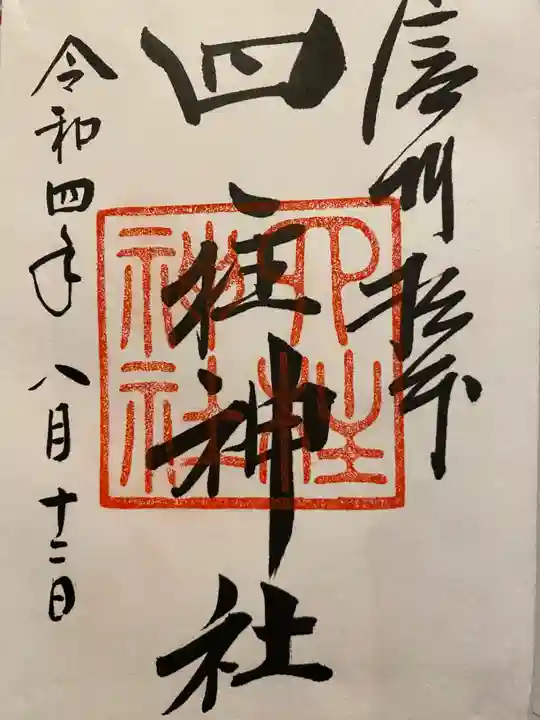 信州松本
四柱神社
四柱
神社
令和四年八月十二日